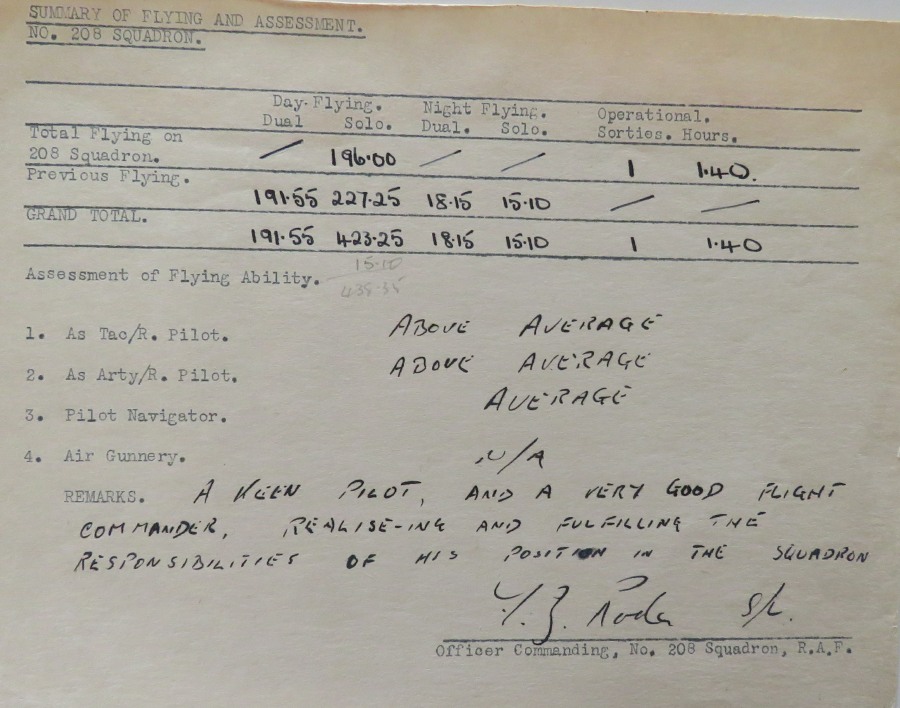 SUMMARY OF FLYING AND ASSESSMENT.
NO. 208 SQUADRON.
Day-Flying. Night Flying. Operational.
Dual Solo. Dual. Solo. Sorties. Hours.
Total Flying on
208 Squadron. / 196.00 / / 1 1.40.
Previous Flying. 191.55 227.25 18.15 15.10 / /
GRAND TOTAL. 191.55 423.25 18.15 15.10 1 1.40
15.10
Assessment of Flying Ability. 438.35
1. As Tac/R. Pilot. ABOVE AVERAGE
2. As Arty/R. Pilot. ABOVE AVERAGE
3. Pilot Navigator. AVERAGE
4. Air Gunnery. N/A
REMARKS. A KEEN PILOT, AND A VERY GOOD FLIGHT
COMMANDER, REALISE-ING AND FULFILLING THE
RESPONSIBILITIES OF HIS POSITION IN THE SQUADRON
S/L.
Officer Commanding, No. 208 Squadron, R.A.F.